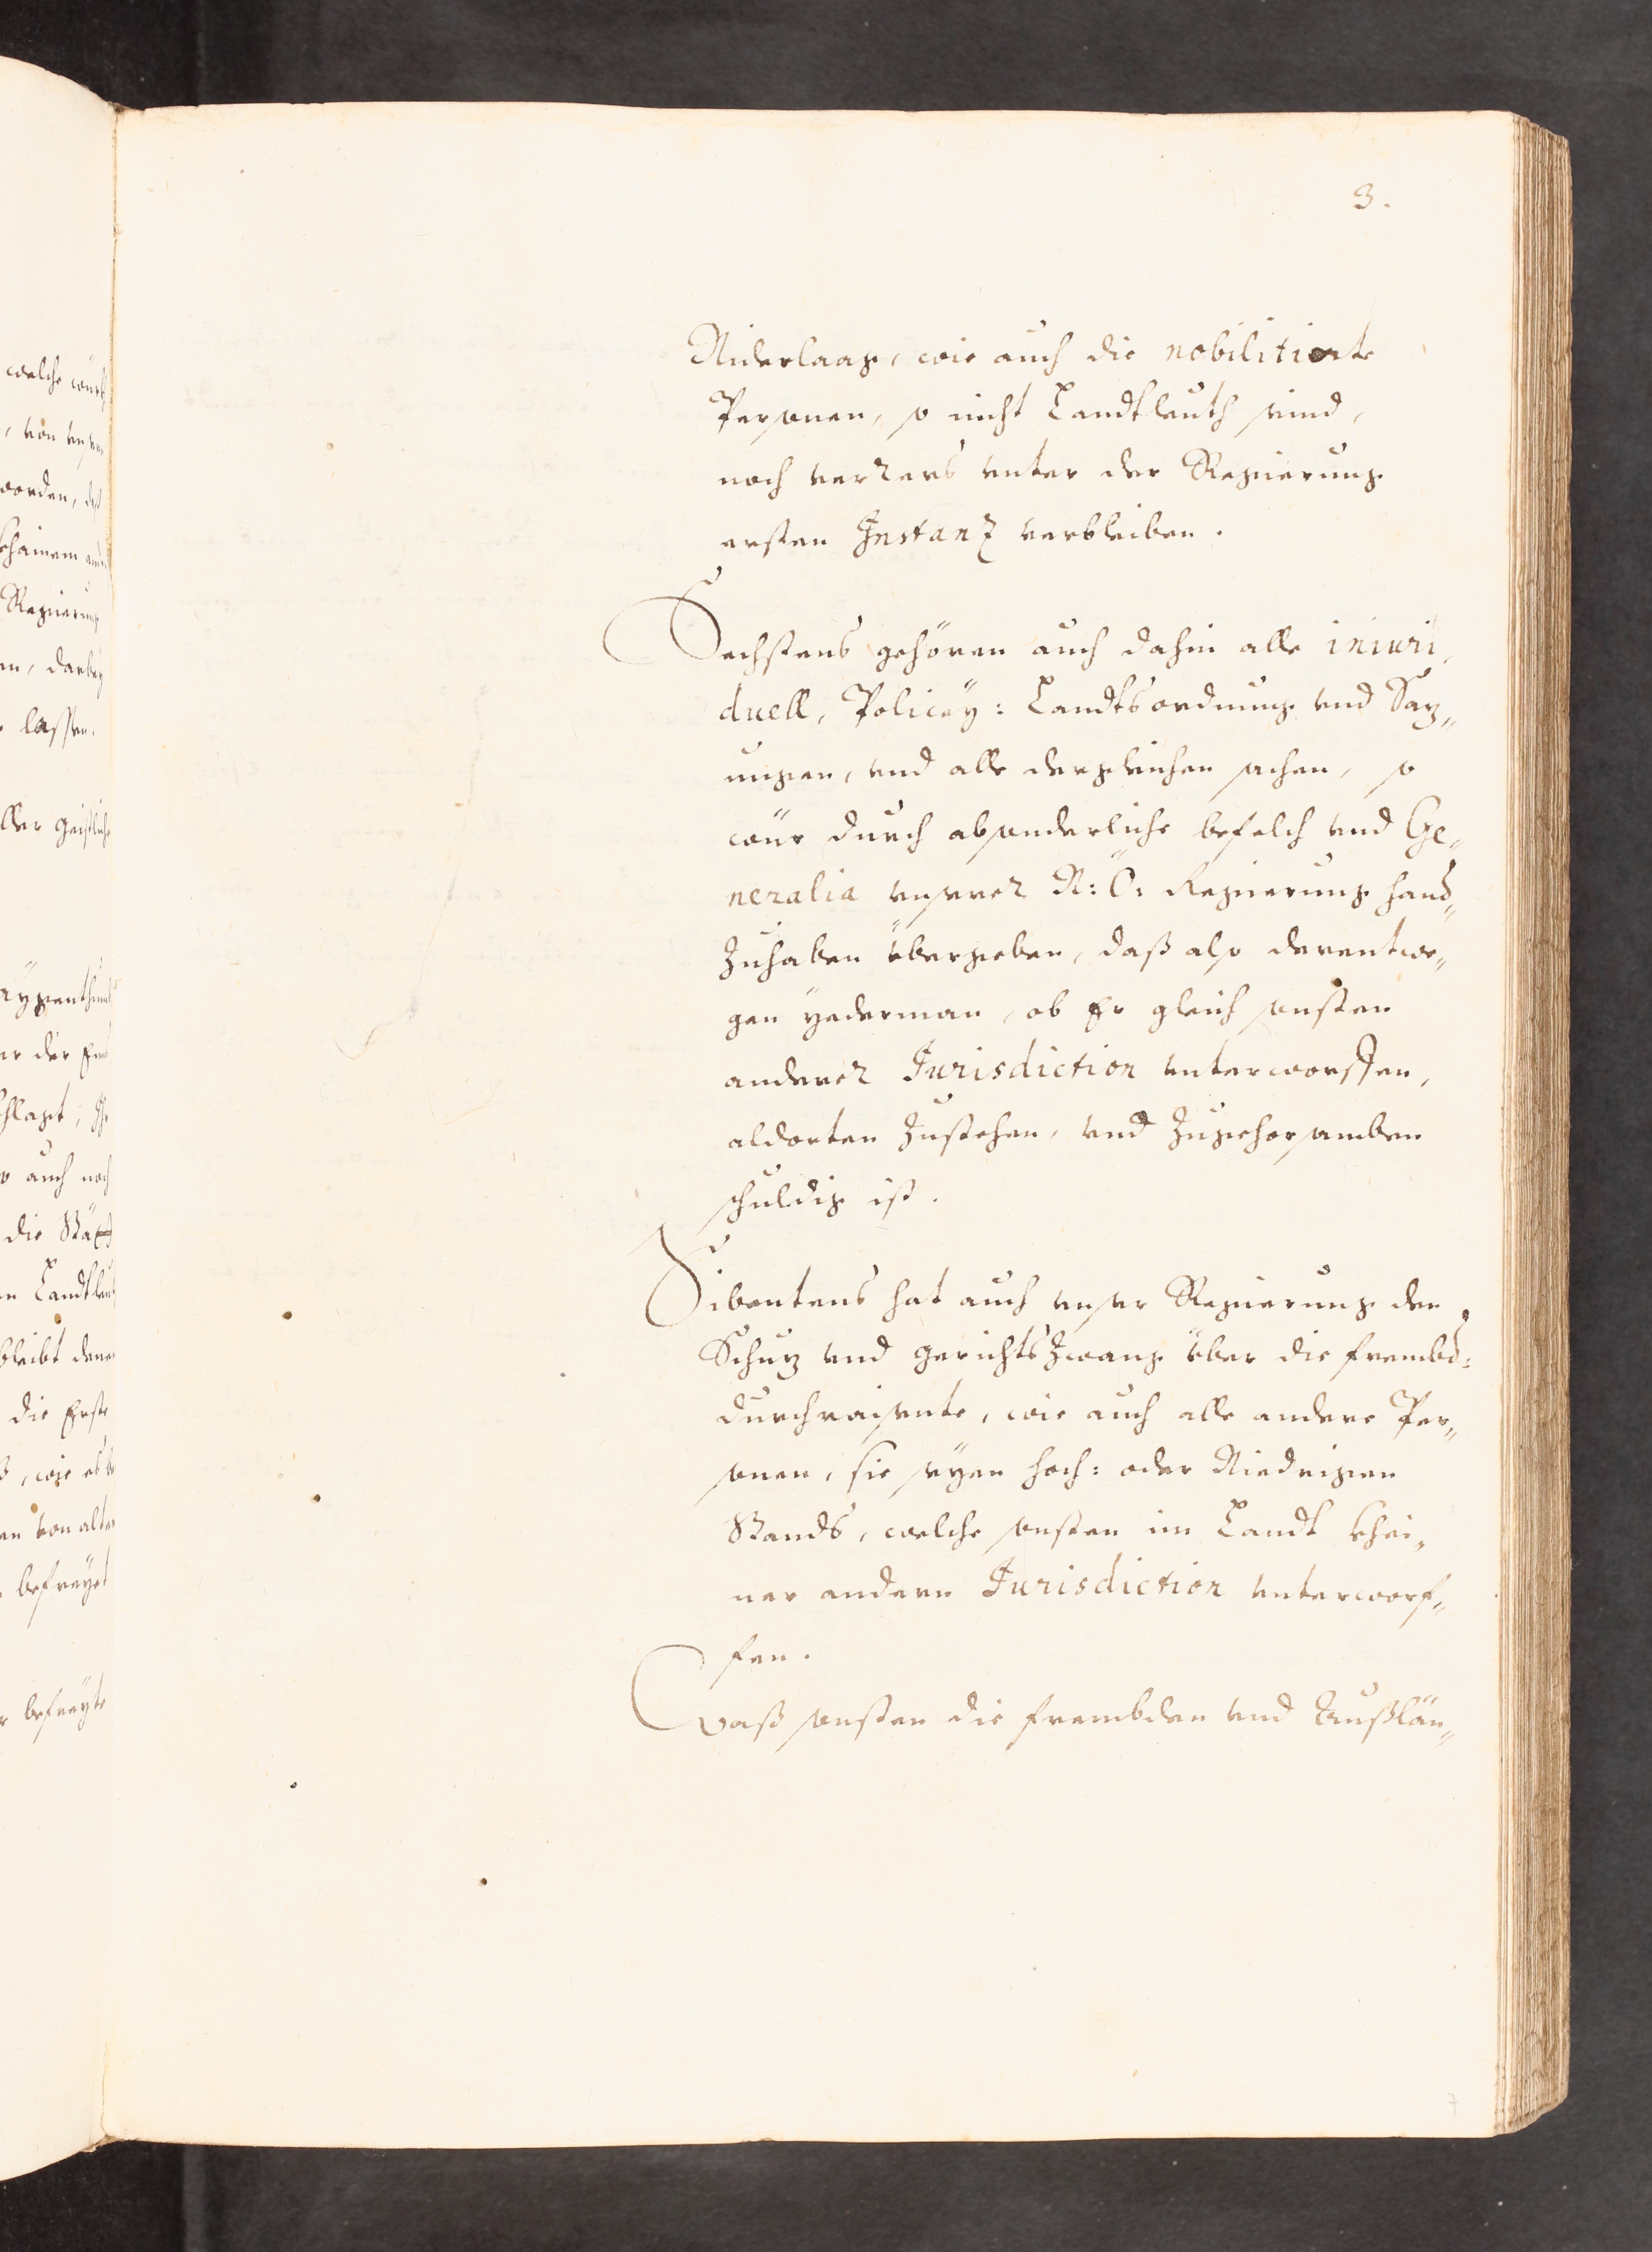 3.
Niderlaag, wie auch die nobilitierte
Personen, so nicht Landtleuth seind,
noch verrers unter der Regierung
ersten Instanz verbleiben.
Sechstens gehören auch dahin alle iniuri,
duell, Policey: Landtsordnung und Saz„
ungen, und alle dergleichen sachen, so
wür durch absonderliche befelch und Ge„
neralia unserer N: Ö: Regierung hand„
Zuhaben übergeben, daß also derentwe„
gen yederman, ob Er gleich sonsten
anderer Jurisdiction unterworffen,
aldorten Zustehen, und Zugehorsamben
schuldig ist.
Sibentens hat auch unser Regierung den
Schuz und gerichtsZwang über die frembd:
durchraisente, wie auch alle andere Per„
sonen, sie seyen hoch: oder Niedrigen
Stands, welche sonsten im Landt khei„
ner andern Jurisdiction unterworf„
fen.
Waß sonsten die frembden und Außlän„
7
welche
von
worden,
Regierung
lassen.
auch noch
die
Landtleut
bleibt
die Erste
wie es
von alter
befreyet
befreyte